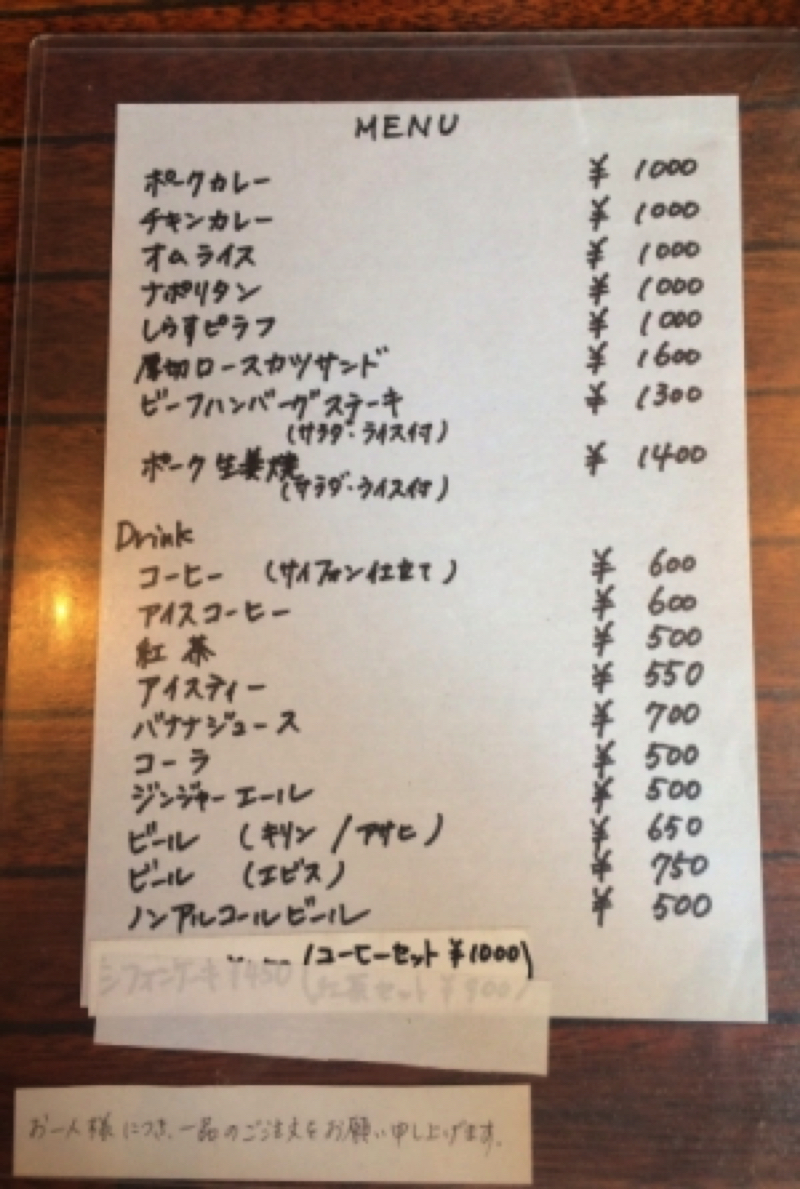 MENU
ポークカレー ¥ 1000
チキンカレー ¥ 1000
オムライス ¥ 1000
ナポリタン ¥ 1000
しらすピラフ ¥ 1000
厚切ロースカツサンド ¥ 1600
ビーフハンバーグステーキ ¥ 1300
(サラダ・ライス付)
ポーク生姜焼 ¥ 1400
(サラダ・ライス付)
Drink
コーヒー (サイフォン仕立て) ¥ 600
アイスコーヒー ¥ 600
紅茶 ¥ 500
アイスティー ¥ 550
バナナジュース ¥ 700
コーラ ¥ 500
ジンジャーエール ¥ 500
ビール (キリン / アサヒ) ¥ 650
ビール (エビス) ¥ 750
ノンアルコールビール ¥ 500
コーヒーセット ¥1000
シフォンケーキ ¥450 (紅茶セット ¥900)
お一人様につき、一品のご注文をお願い申し上げます。